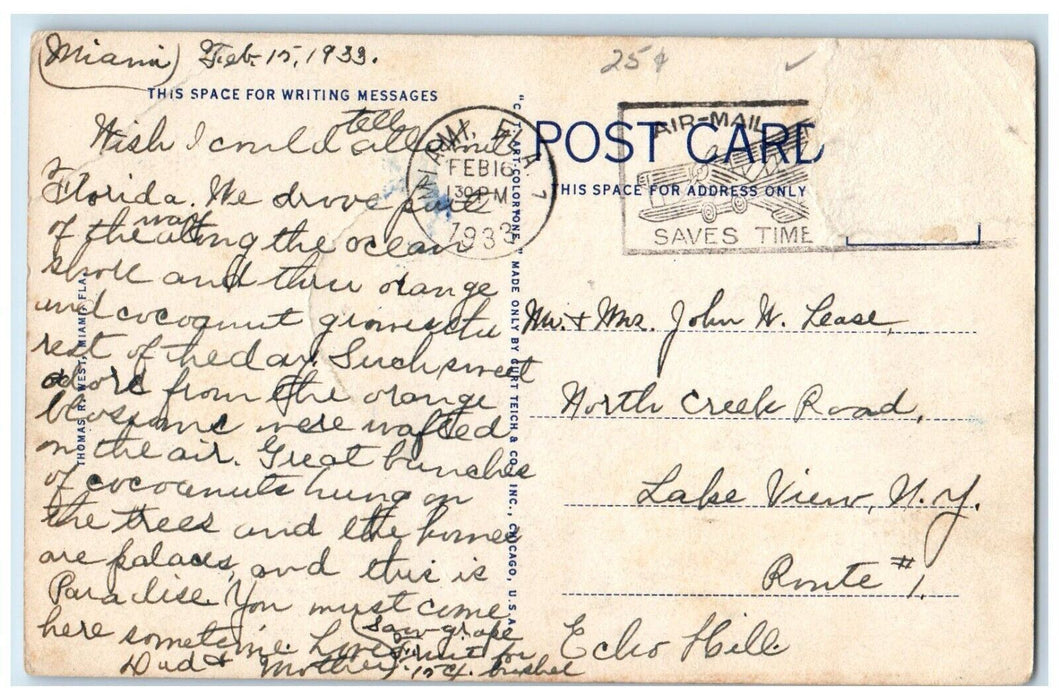 (Miami) Feb. 15, 1933.
25¢
THIS SPACE FOR WRITING MESSAGES
Wish I could tell all about
Florida. We drove part
of the way along the ocean
shore and thru orange
and cocoanut groves the
rest of the day. Such sweet
odors from the orange
blossoms were wafted
on the air. Great bunches
of cocoanuts hung on
the trees and the homes
are palaces, and this is
Paradise. You must come
here sometime. Love
Dad & Mother.
(Saw grape
Fruit for
15¢ bushel
THOMAS R. WEST, MIAMI, FLA.
"C. T. ART-COLORTONE" MADE ONLY BY CURT TEICH & CO., INC., CHICAGO, U.S.A.
MIAMI, FLA. 7
FEB 16
130 PM
1933
AIR-MAIL
SAVES TIME
POST CARD
THIS SPACE FOR ADDRESS ONLY
Mr. & Mrs. John W. Lease,
North Creek Road,
Lake View, N.Y.
Route #1.
Echo Hill.